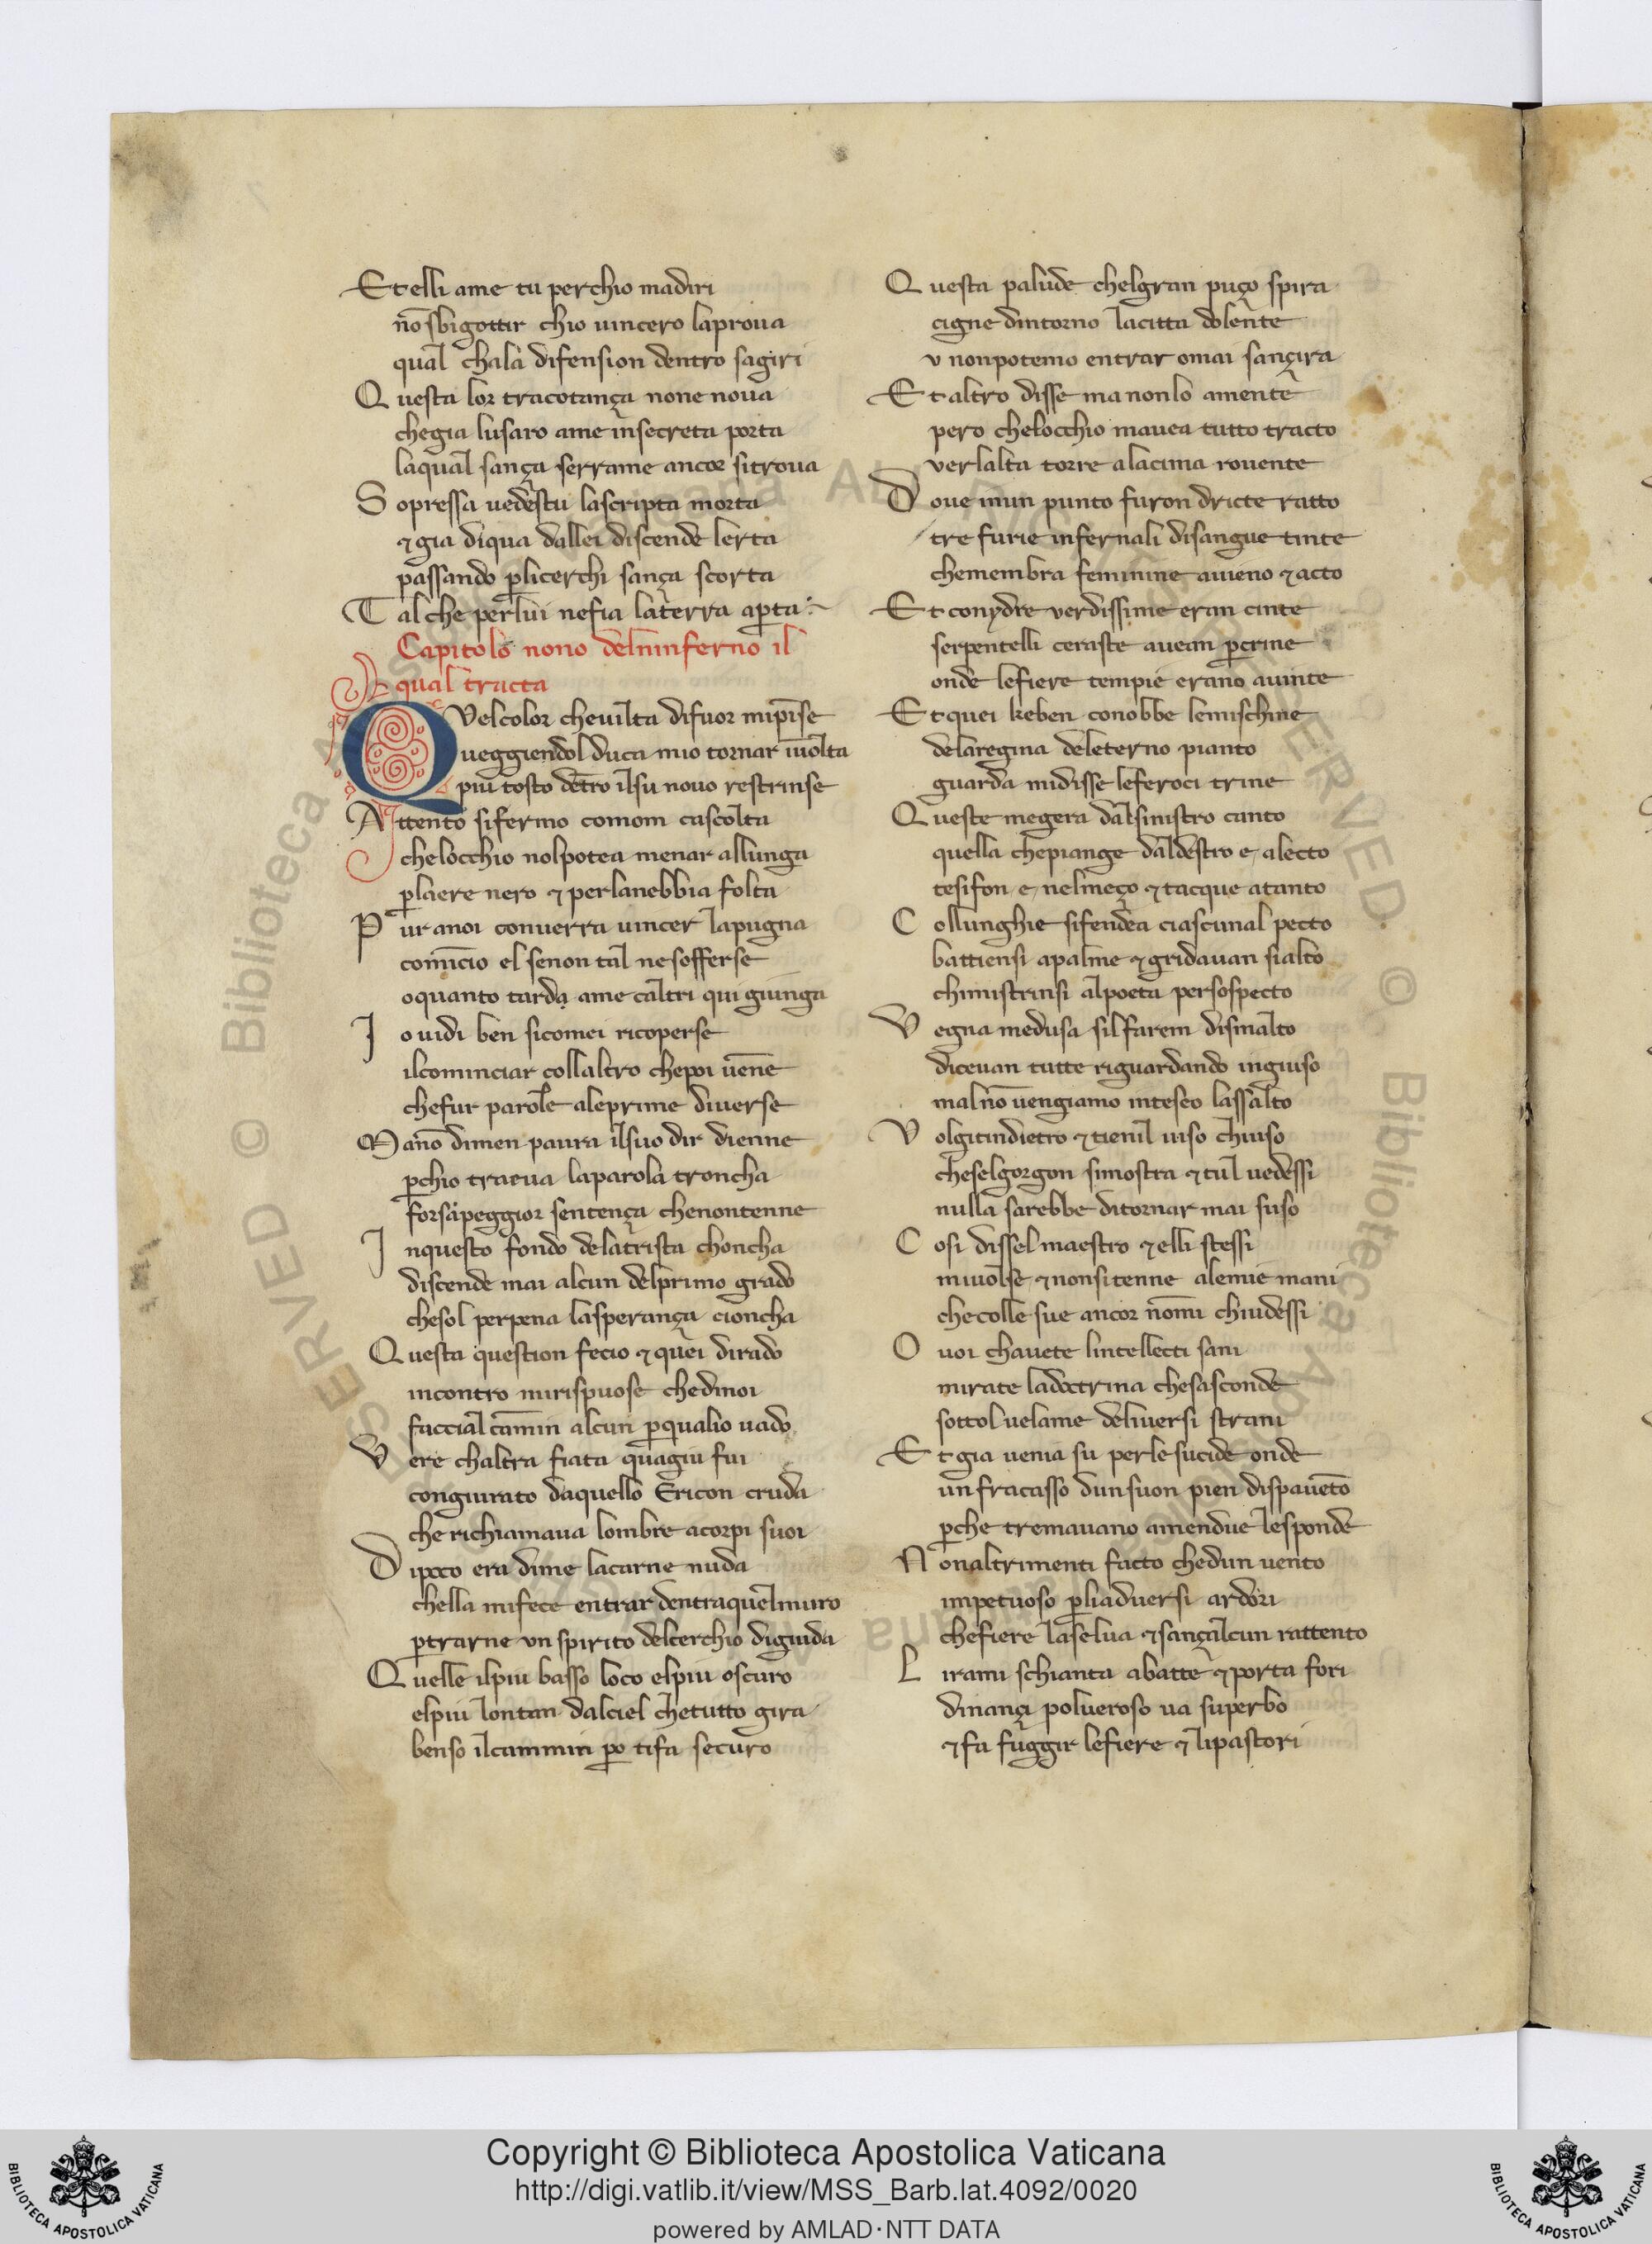 Et elli ame tu perchio madiri
nō sbigottir chio uincero laproua
qual chala difension dentro sagiri
Questa lor tracotança none noua
chegia lusaro ame insecreta porta
laqual sança serrame ancor sitroua
Sopressa uedestu lascripta morta
⁊ gia diqua dallei discende lerta
passando ꝑlicerchi sança scorta
Tal che perlui nefia laterra aꝑta
Capitolo nono delninferno il
qual tracta
Quelcolor cheuilta difuor mipīse
ueggiendol duca mio tornar iuolta
piu tosto dētro ilsu nouo restrinse
Attento sifermo comom cascolta
chelocchio nolpotea menar allunga
ꝑlaere nero ⁊ perlanebbia folta
Pur anoi conuerra uincer lapugna
comīcio el senon tal nesofferse
oquanto tarda ame caltri qui giunga
Io uidi ben sicomei ricoperse
ilcominciar collaltro chepoi uēne
chefur parole aleprime diuerse
Ma nō dimen paura ilsuo dir dienne
ꝑchio traeua laparola troncha
forsapeggior sentença chenontenne
Inquesto fondo delatrista choncha
discende mai alcun delprimo grado
chesol perpena lasperança cioncha
Questa question fecio ⁊ quei dirado
incontro mirispuose chedinoi
faccial camin alcun ꝑqualio uado
Vere chaltra fiata quagiu fui
congiurato daquello Ericon cruda
che richiamaua lombre acorpi suoi
Dipoco era dime lacarne nuda
chella mifece entrar dentraquelmuro
ꝑtrarne vn spirito delcerchio digiuda
Quelle ilpiu basso loco elpiu oscuro
elpiu lontan dalciel chetutto gira
benso ilcammin ꝑo tifa securo
Questa palude chelgran puço spira
cigne dintorno lacitta dolente
v nonpotemo entrar omai sançira
Et altro disse ma nonlo amente
pero chelocchio mauea tutto tracto
verlalta torre alacima rouente
Doue inun punto furon dricte ratto
tre furie infernali disangue tinte
chemembra feminine auieno ⁊ acto
Et conydre verdissime eran cinte
serpentelli ceraste auean ꝑcrine
onde lefiere tempie erano auinte
Et quei keben conobbe lemischine
delaregina deleterno pianto
guarda midisse leferoci trine
Queste megera dalsinistro canto
quella chepiange daldestro e alecto
tesifon e nelmeço ⁊ tacque atanto
Collunghie sifendea ciascunal pecto
battiensi apalme ⁊ gridauan sialto
chimistrinsi alpoeta persospecto
Vegna medusa silfarem dismalto
diceuan tutte riguardando ingiuso
mal nō uengiamo inteseo lassalto
Volgitindietro ⁊ tienil uiso chiuso
cheselgorgon simostra ⁊ tul uedessi
nulla sarebbe ditornar mai suso
Cosi dissel maestro ⁊ elli stessi
miuolse ⁊ nonsitenne alemie mani
checolle sue ancor nōmi chiudessi
O uoi chauete lintellecti sani
mirate ladoctrina chesasconde
sottol uelame deliuersi strani
Et gia uenia su perlesucide onde
un fracasso dunsuon pien dispauēto
ꝑche tremauano amendue lesponde
Nonaltrimenti facto chedun uento
impetuoso ꝑliaduersi ardori
chefiere laselua ⁊ sançalcun rattento
Lirami schianta abatte ⁊ porta fori
dinançi polueroso ua superbo
⁊ fa fuggir lefiere ⁊ lipastori
Copyright © Biblioteca Apostolica Vaticana
http://digi.vatlib.it/view/MSS_Barb.lat.4092/0020
powered by AMLAD·NTT DATA
BIBLIOTECA APOSTOLICA VATICANA
BIBLIOTECA APOSTOLICA VATICANA